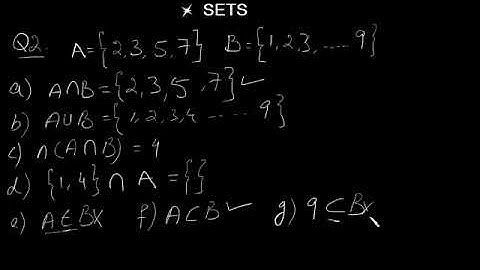 * SETS
Q2. A={2,3,5,7} B={1,2,3,.....9}
a) A∩B={2,3,5,7} ✓
b) A∪B={1,2,3,4 ..... 9}
c) n(A∩B)=4
d) {1,4}∩A={}
e) A∈B× f) A⊂B ✓ g) 9⊆B×